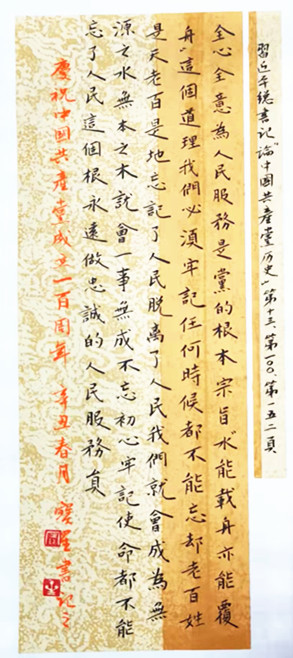 習近平總書記論“中國共產黨历史”第十三、第一00、第一五二頁
全心全意為人民服務是黨的根本宗旨“水能載舟亦能覆
舟”這個道理我們必須牢記任何時候都不能忘却老百姓
是天老百是地忘記了人民脫離了人民我們就會成為無
源之水無本之木就會一事無成不忘初心牢記使命都不能
忘了人民這個根永遠做忠誠的人民服務員
慶祝中國共產黨成立一百周年 辛丑春月 寶 書記之